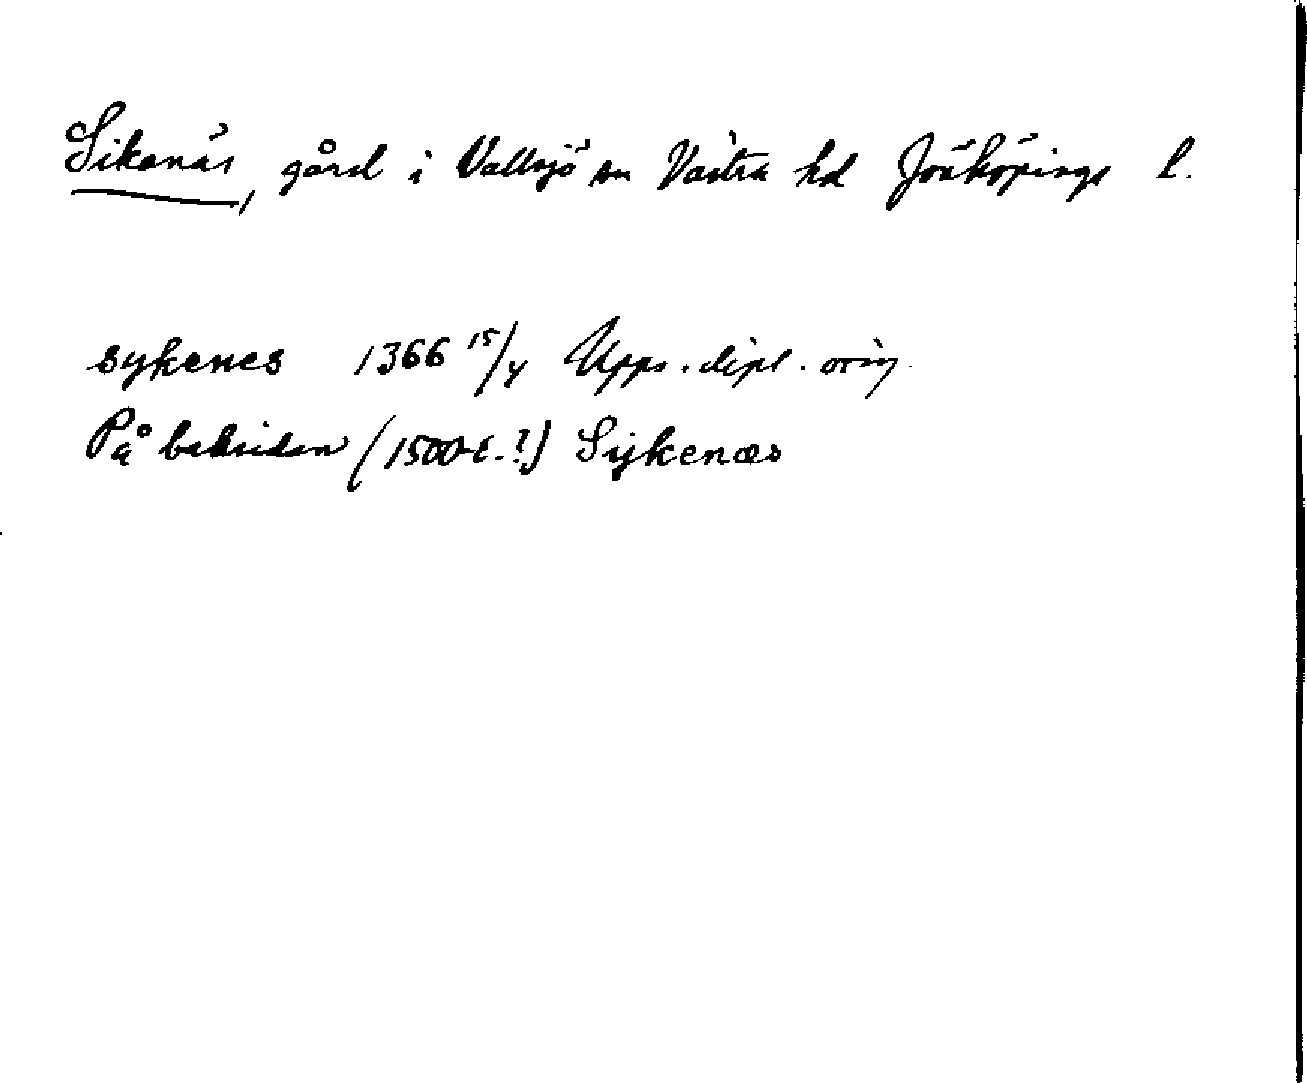 Sikanäs, gård i Vallsjö sn Västra hd Jönköpings l.
sykenes 1366 15/4 Upps. dipl. orig.
På baksidan (1500-t.?) Sykenæs